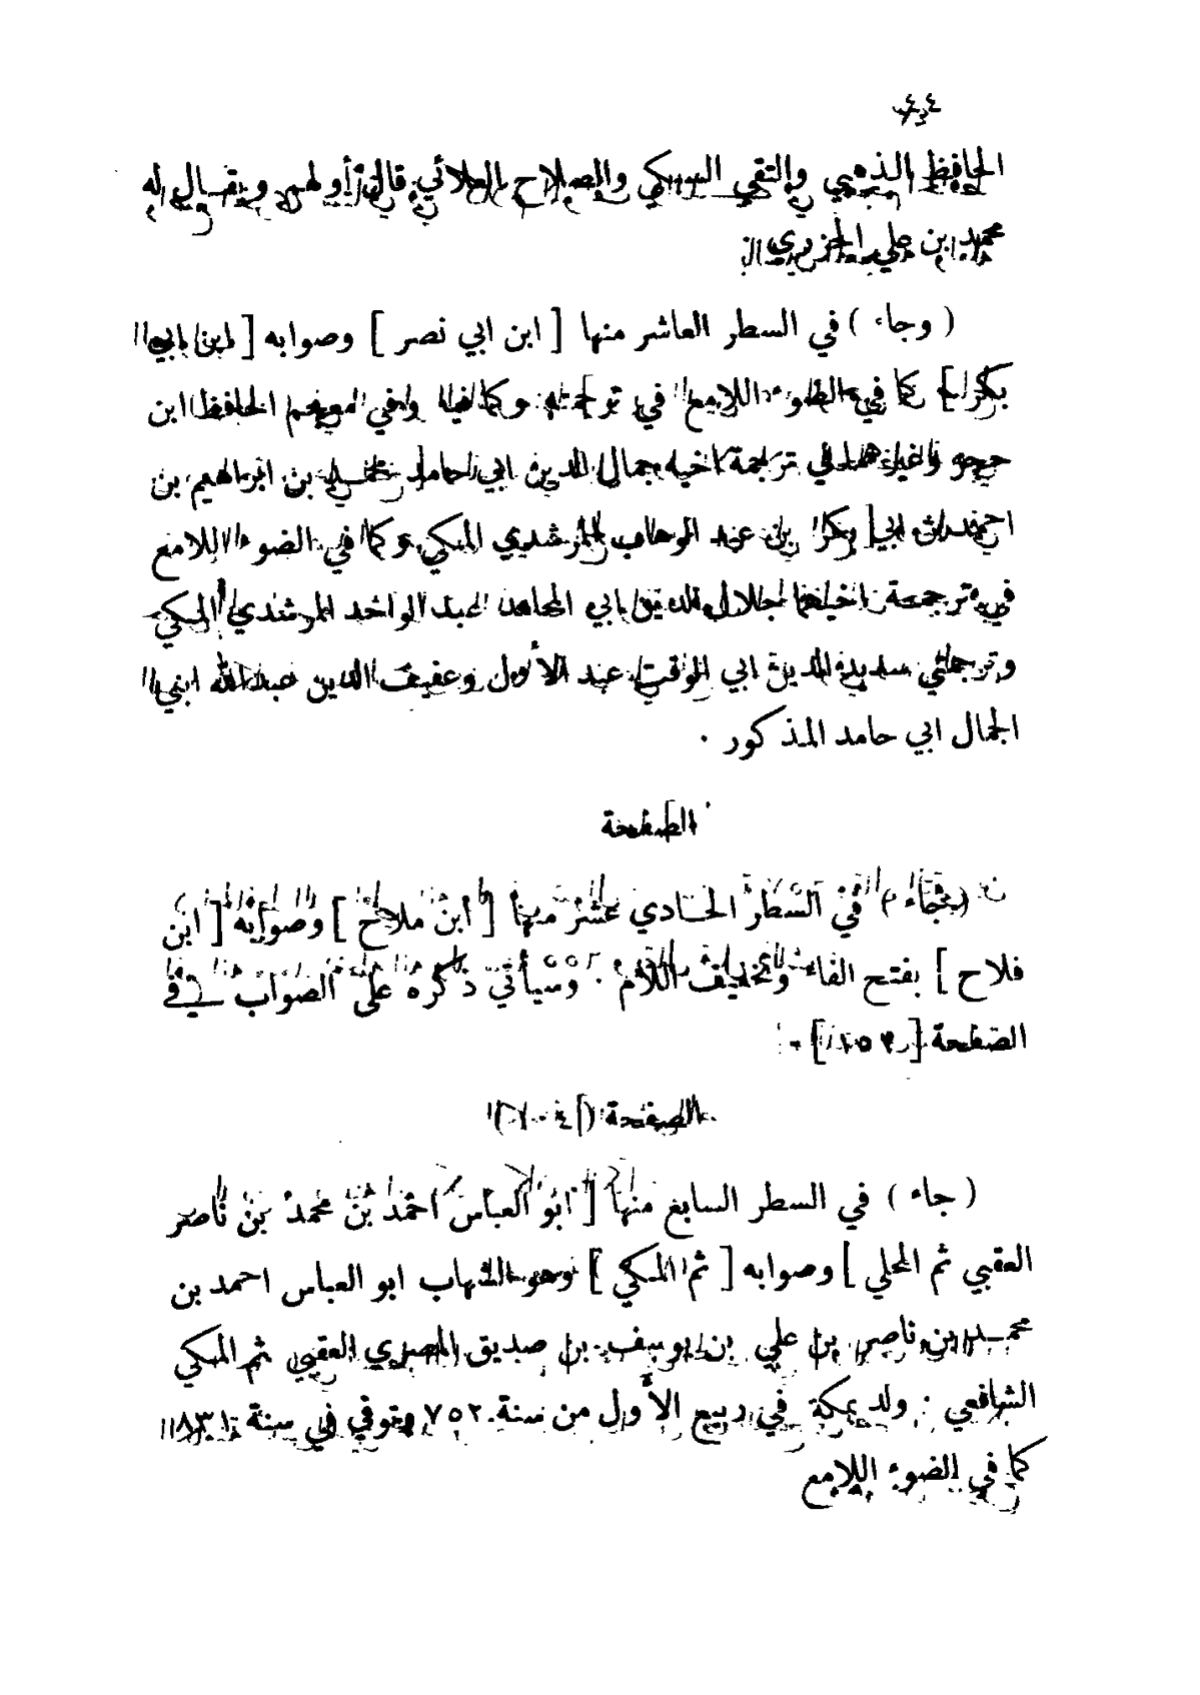 الحافظ الذهبي والتقي السبكي والصلاح العلائي قال أولهم ويقال له
محمد بن علي الجزري
( وجاء ) في السطر العاشر منها [ ابن ابي نصر ] وصوابه [ ابن ابي
بكر ] كما في الضوء اللامع في ترجمته وكما فيه وفي معجم الحافظ ابن
حجر وغيرهما في ترجمة اخيه جمال الدين ابي حامد محمد بن ابراهيم بن
احمد بن ابي بكر بن عبد الوهاب المرشدي المكي وكما في الضوء اللامع
في ترجمة اخيهما جلال الدين ابي المحامد عبد الواحد المرشدي المكي
وترجمتي سديد الدين ابي الوقت عبد الأول وعفيف الدين عبد الله ابني
الجمال ابي حامد المذكور ٠
الصفحة
( جاء ) في السطر الحادي عشر منها [ ابن ملاح ] وصوابه [ ابن
فلاح ] بفتح الفاء وتخفيف اللام ٠ وسيأتي ذكره على الصواب في
الصفحة
الصفحة
( جاء ) في السطر السابع منها [ ابو العباس احمد بن محمد بن ناصر
العقبي ثم المحلي ] وصوابه [ ثم المكي ] وهو الشهاب ابو العباس احمد بن
محمد بن ناصر بن علي بن يوسف بن صديق المصري العقبي ثم المكي
الشافعي ٠ ولد بمكة في ربيع الأول من سنة ٧٥٢ وتوفي في سنة ٨٣١
كما في الضوء اللامع